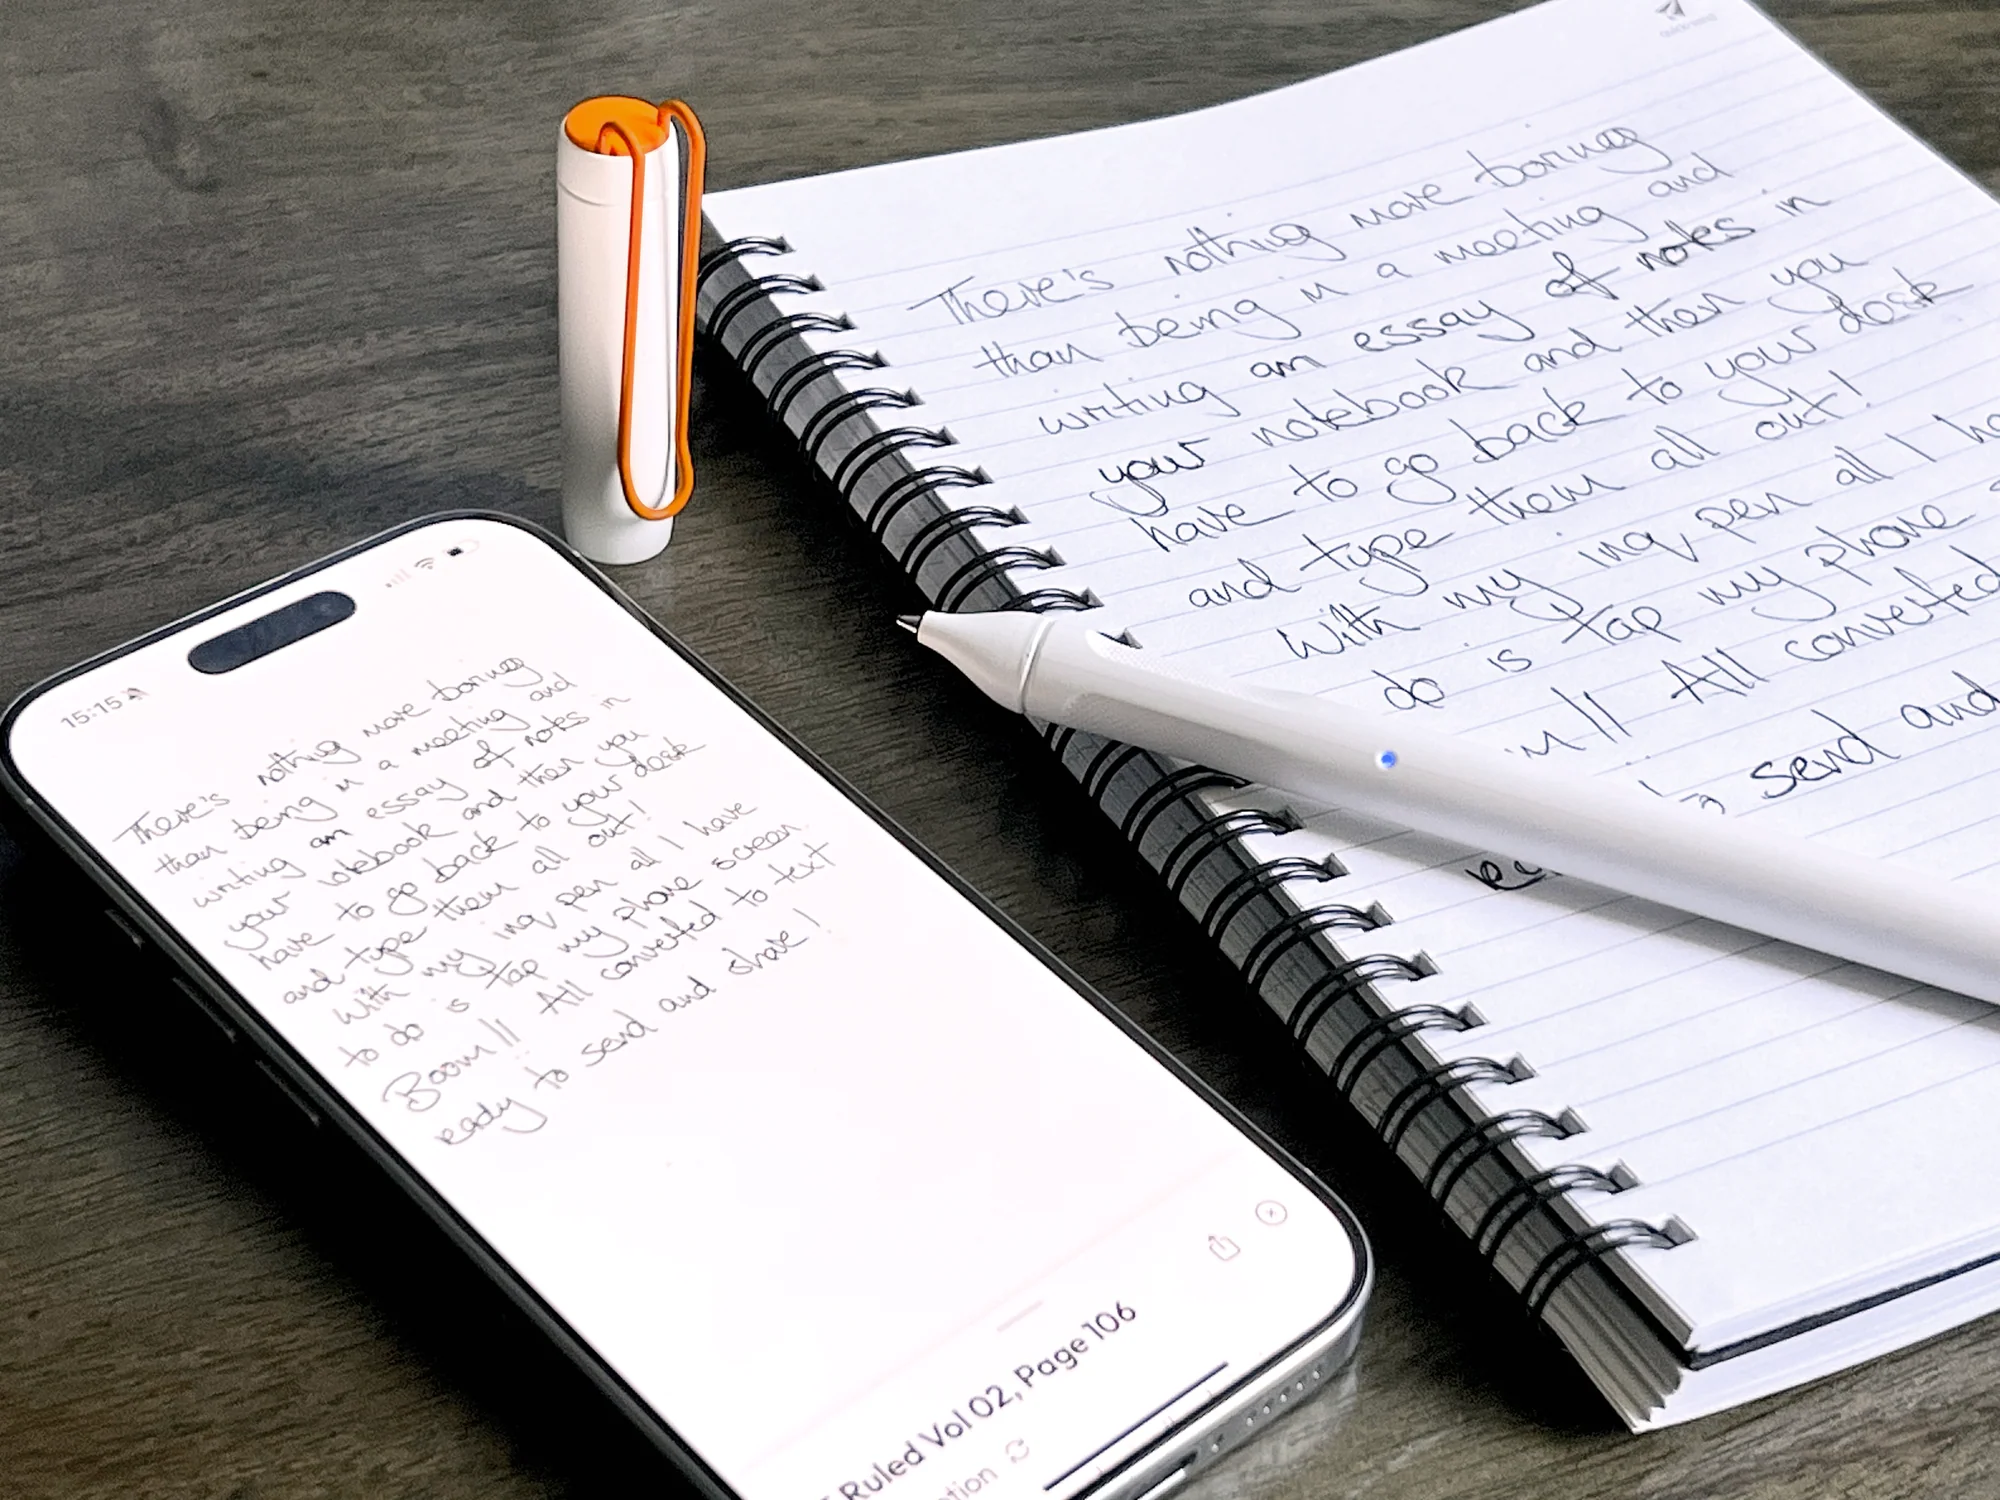 There's nothing more boring
than being in a meeting and
writing an essay of notes in
your notebook and then you
have to go back to your desk
and type them all out!
With my inq pen all I
do is tap my phone
All converted
send and
15:15
There's nothing more boring
than being in a meeting and
writing an essay of notes in
your notebook and then you
have to go back to your desk
and type them all out!
With my inq pen all I have
to do is tap my phone screen
Boom!! All converted to text
ready to send and share!
Ruled Vol 02, Page 106